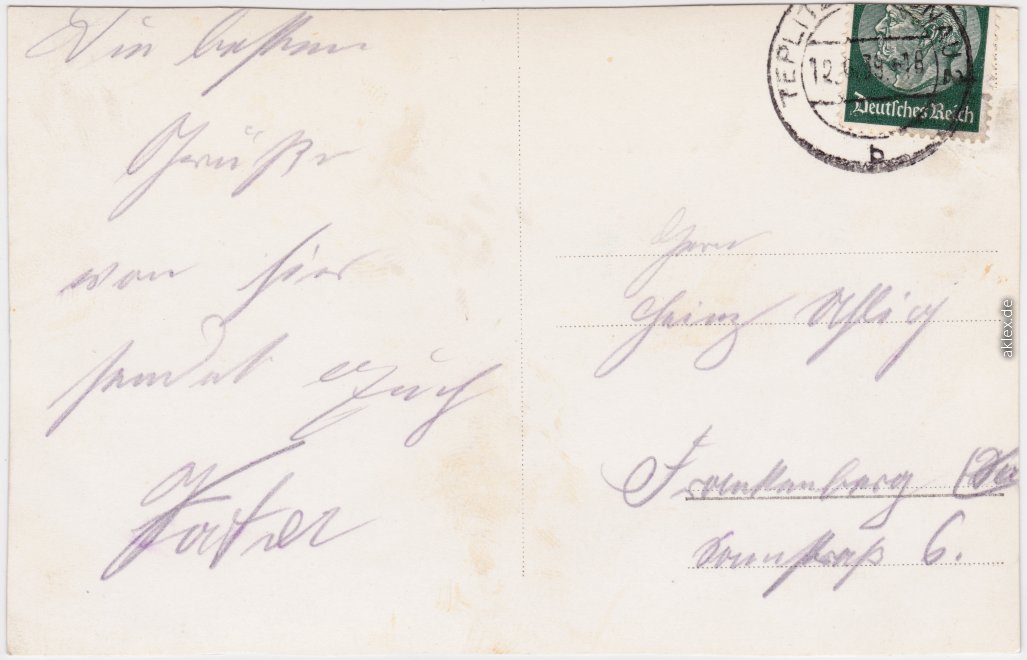 Die besten
Grüße
von hier
sendet Euch
Vater
TEPLITZ SCHÖNAU 2
12. 39.-18
b
Deutsches Reich
Herrn
Heinz
Frankenberg (Sa
6.
aklex.de